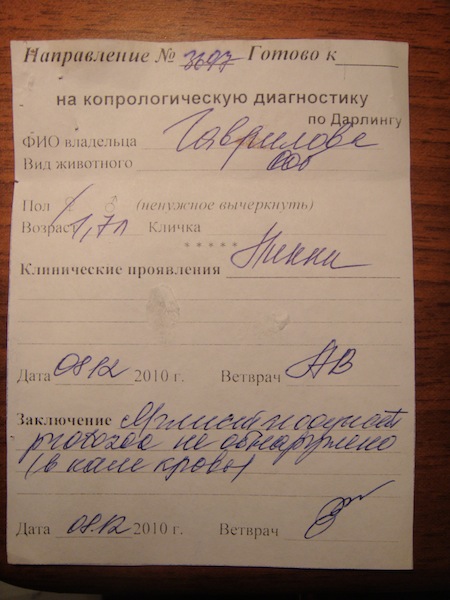 Направление № 3697 Готово к
на копрологическую диагностику
по Дарлингу
ФИО владельца Гаврилова
Вид животного соб
Пол ♀ ♂ (ненужное вычеркнуть)
Возраст 1,7л Кличка
*****
Никки
Клинические проявления
Дата 08.12 2010 г. Ветврач АВ
Заключение Яйца глист и ооцист
не обнаружено
(в кале кровь)
Дата 08.12 2010 г. Ветврач